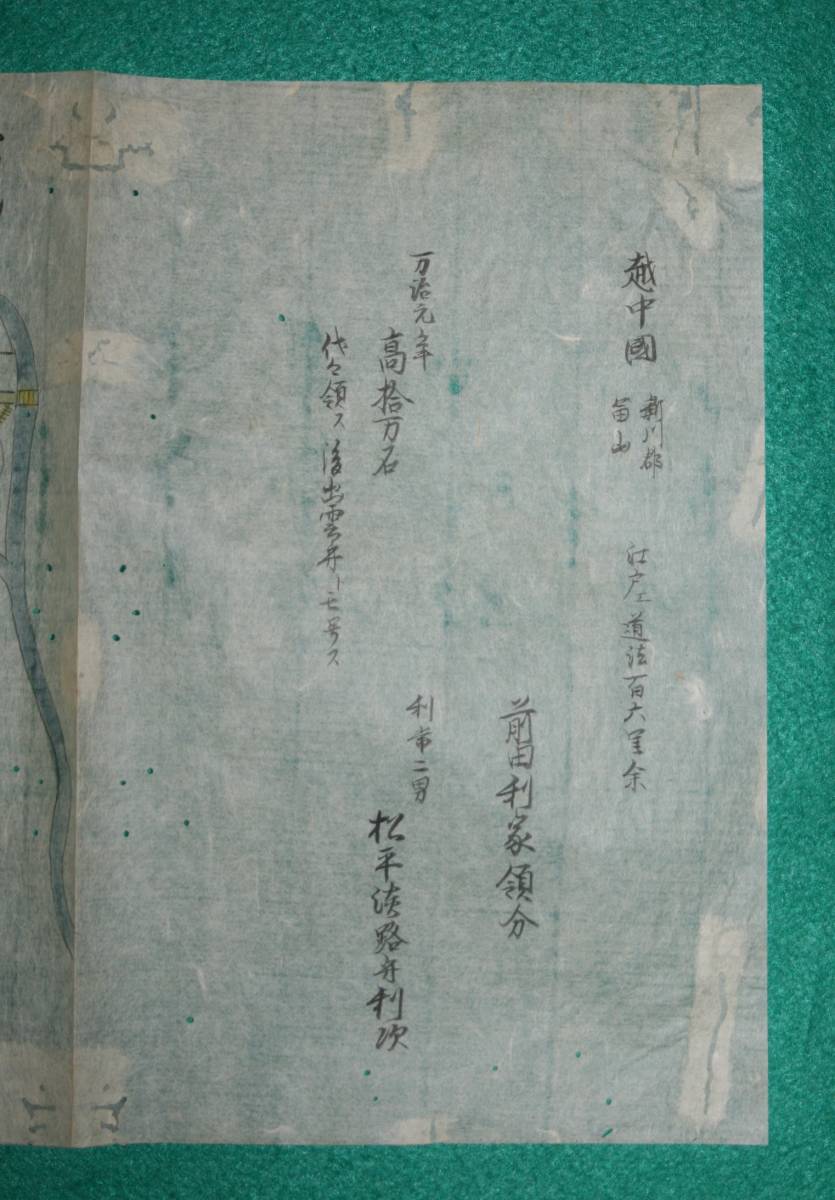 越中國
新川郡
富山
江戸エ道法百六里余
前田利家領分
万治元年
高拾万石
利常二男
松平淡路守利次
代々領ス後出雲守トモ号ス